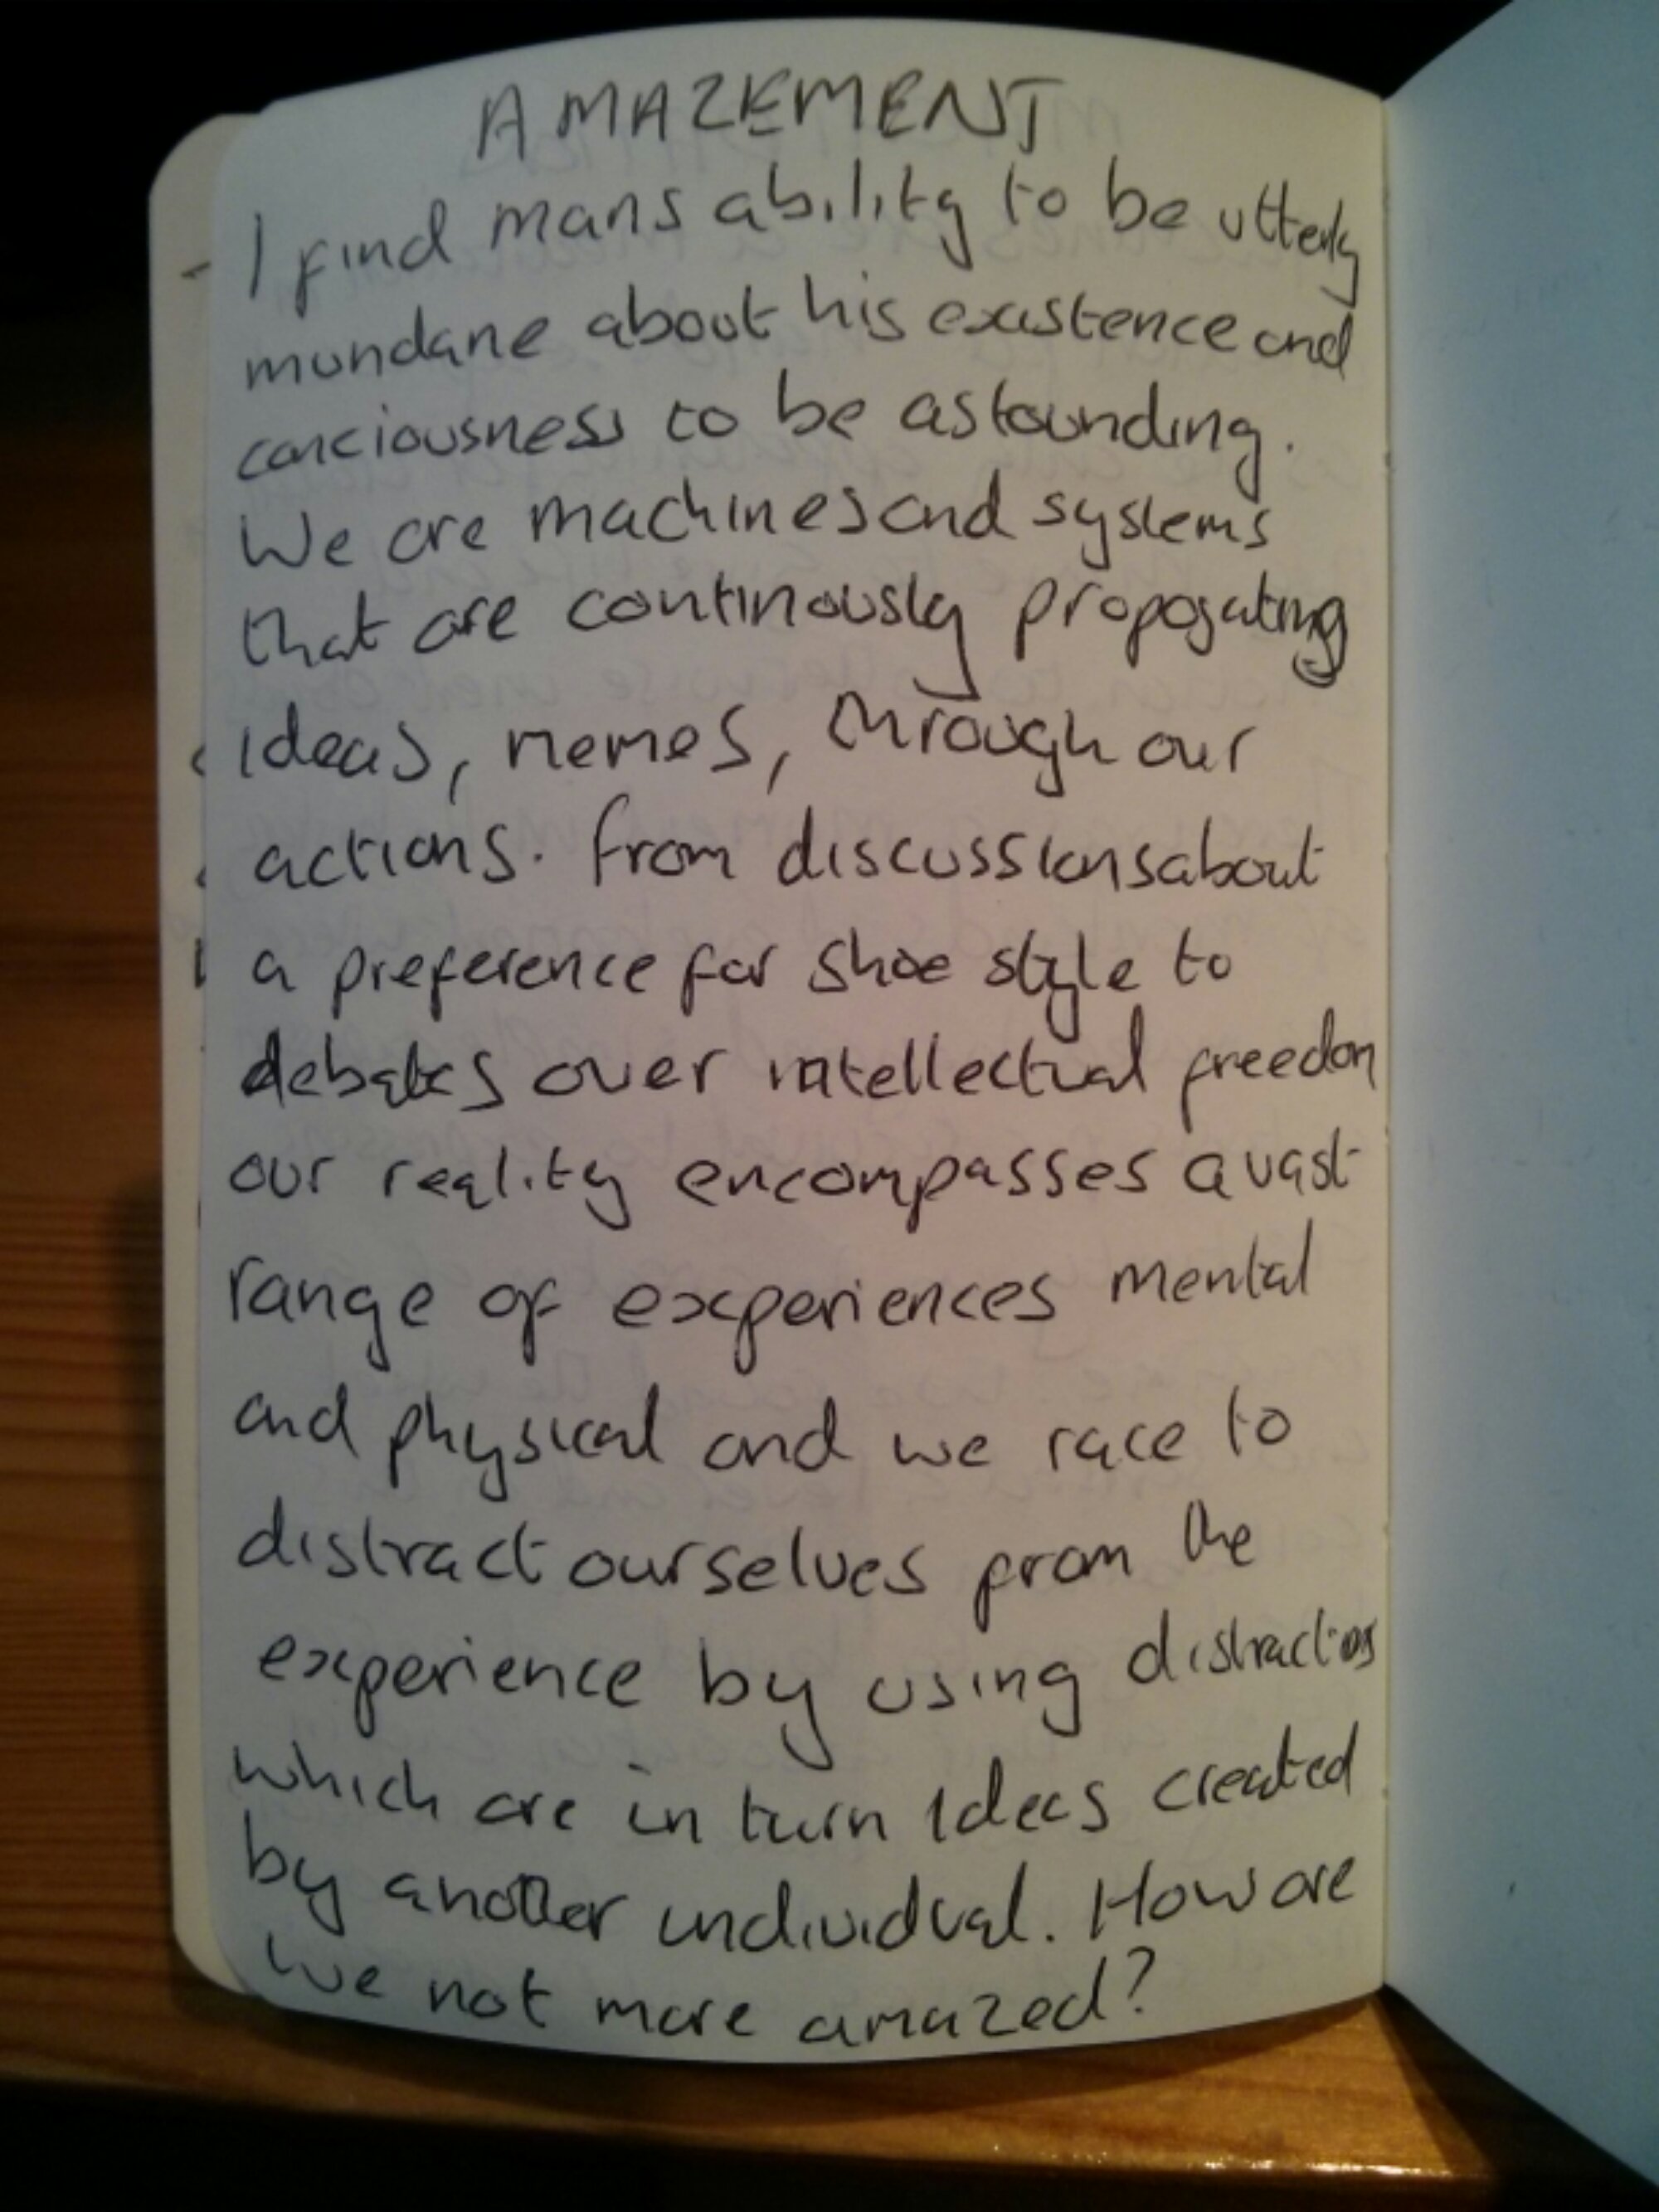 AMAZEMENT
I find mans ability to be utterly
mundane about his existence and
conciousness to be astounding.
We are machines and systems
that are continously propogating
ideas, memes, through our
actions. From discussions about
a preference for shoe style to
debates over intellectual freedom
our reality encompasses a vast
range of experiences mental
and physical and we race to
distract ourselves from the
experience by using distractions
which are in turn ideas created
by another individual. How are
we not more amazed?